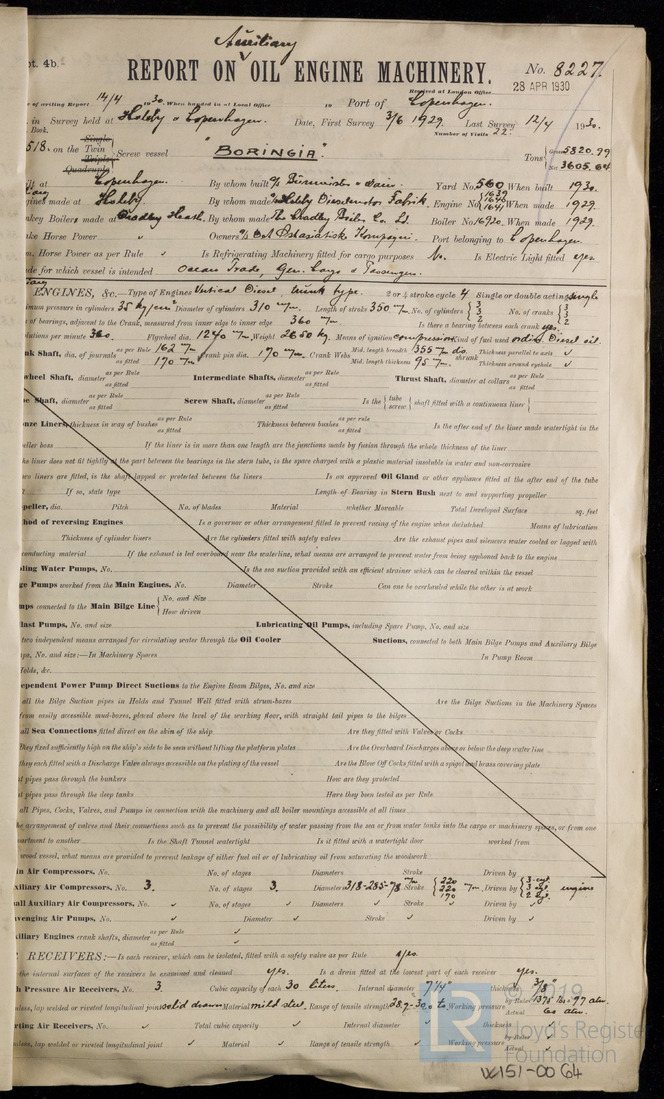 Auxiliary
pt. 4b.
REPORT ON OIL ENGINE MACHINERY.
No. 8227.
28 APR 1930
Received at London Office
of writing Report 14/4 1930. When handed in at Local Office 19 Port of Copenhagen.
in Survey held at Holeby & Copenhagen. Date, First Survey 3/6 1929. Last Survey 12/4 1930.
Book. Number of Visits 22.
Single
518. on the Twin Screw vessel "BORINGIA". Tons Gross 5820.99
Triple
Quadruple Net 3605.64
lt at Copenhagen. By whom built Burmeister & Wain. Yard No. 560 When built 1930.
gines made at Holeby By whom made Holeby Dieselmotor Fabrik. Engine No. 1639 1640 1641 When made 1929.
nkey Boilers made at Cradley Heath. By whom made The Cradley Boiler Co. Ld. Boiler No. 16920. When made 1929.
ake Horse Power Owners Ostasiatisk Kompagni. Port belonging to Copenhagen.
m. Horse Power as per Rule Is Refrigerating Machinery fitted for cargo purposes No. Is Electric Light fitted yes.
ade for which vessel is intended Ocean Trade, Gen. Cargo & Passengers.
ENGINES, &c.—Type of Engines Vertical Diesel, trunk type. 2 or 4 stroke cycle 4 Single or double acting single
imum pressure in cylinders 35 kg/cm² Diameter of cylinders 310 m/m. Length of stroke 350 m/m No. of cylinders 3 3 2 No. of cranks 3 3 2
n of bearings, adjacent to the Crank, measured from inner edge to inner edge 360 m/m Is there a bearing between each crank yes.
olutions per minute 360. Flywheel dia. 1240 m/m Weight 2650 kg. Means of ignition compression Kind of fuel used ordin. Diesel oil.
nk Shaft, dia. of journals as per Rule 162 m/m as fitted 170 m/m Crank pin dia. 170 m/m Crank Webs Mid. length breadth 355 m/m Mid. length thickness 95 m/m shrunk Thickness parallel to axis Thickness around eyehole
wheel Shaft, diameter as per Rule as fitted Intermediate Shafts, diameter as per Rule as fitted Thrust Shaft, diameter at collars as per Rule as fitted
be Shaft, diameter as per Rule as fitted Screw Shaft, diameter as per Rule as fitted Is the tube screw shaft fitted with a continuous liner
nze Liners, thickness in way of bushes as per Rule as fitted Thickness between bushes as per rule as fitted Is the after end of the liner made watertight in the
eller boss If the liner is in more than one length are the junctions made by fusion through the whole thickness of the liner
the liner does not fit tightly at the part between the bearings in the stern tube, is the space charged with a plastic material insoluble in water and non-corrosive
wo liners are fitted, is the shaft lapped or protected between the liners Is an approved Oil Gland or other appliance fitted at the after end of the tube
? If so, state type Length of Bearing in Stern Bush next to and supporting propeller
peller, dia. Pitch No. of blades Material whether Moveable Total Developed Surface sq. feet
hod of reversing Engines Is a governor or other arrangement fitted to prevent racing of the engine when declutched Means of lubrication
Thickness of cylinder liners Are the cylinders fitted with safety valves Are the exhaust pipes and silencers water cooled or lagged with
conducting material If the exhaust is led overboard near the waterline, what means are arranged to prevent water from being syphoned back to the engine
ling Water Pumps, No. Is the sea suction provided with an efficient strainer which can be cleared within the vessel
ge Pumps worked from the Main Engines, No. Diameter Stroke Can one be overhauled while the other is at work
mps connected to the Main Bilge Line No. and Size How driven
last Pumps, No. and size Lubricating Oil Pumps, including Spare Pump, No. and size
two independent means arranged for circulating water through the Oil Cooler Suctions, connected to both Main Bilge Pumps and Auxiliary Bilge
ps, No. and size:—In Machinery Spaces In Pump Room
Holds, &c.
ependent Power Pump Direct Suctions to the Engine Room Bilges, No. and size
all the Bilge Suction pipes in Holds and Tunnel Well fitted with strum-boxes Are the Bilge Suctions in the Machinery Spaces
from easily accessible mud-boxes, placed above the level of the working floor, with straight tail pipes to the bilges
all Sea Connections fitted direct on the skin of the ship Are they fitted with Valves or Cocks
they fixed sufficiently high on the ship's side to be seen without lifting the platform plates Are the Overboard Discharges above or below the deep water line
they each fitted with a Discharge Valve always accessible on the plating of the vessel Are the Blow Off Cocks fitted with a spigot and brass covering plate
t pipes pass through the bunkers How are they protected
t pipes pass through the deep tanks Have they been tested as per Rule
all Pipes, Cocks, Valves, and Pumps in connection with the machinery and all boiler mountings accessible at all times
he arrangement of valves and their connections such as to prevent the possibility of water passing from the sea or from water tanks into the cargo or machinery spaces, or from one
partment to another Is the Shaft Tunnel watertight Is it fitted with a watertight door worked from
wood vessel, what means are provided to prevent leakage of either fuel oil or of lubricating oil from saturating the woodwork
in Air Compressors, No. No. of stages Diameters Stroke Driven by
xiliary Air Compressors, No. 3. No. of stages 3. Diameters 318-285-78 m/m Stroke 220 220 170 m/m Driven by 3 cyl. 3 cyl. 2 cyl. engine
all Auxiliary Air Compressors, No. No. of stages Diameters Stroke Driven by
venging Air Pumps, No. Diameter Stroke Driven by
xiliary Engines crank shafts, diameter as per Rule as fitted
RECEIVERS:—Is each receiver, which can be isolated, fitted with a safety valve as per Rule yes.
the internal surfaces of the receivers be examined and cleaned yes. Is a drain fitted at the lowest part of each receiver yes.
h Pressure Air Receivers, No. 3. Cubic capacity of each 30 liters. Internal diameter 7¼" thickness 3/8"
mless, lap welded or riveted longitudinal joint solid drawn Material mild steel. Range of tensile strength Working pressure by Rules 1375 lbs = 97 atm. Actual 60 atm.
rting Air Receivers, No. Total cubic capacity Internal diameter thickness
mless, lap welded or riveted longitudinal joint Material Range of tensile strength Working pressure by Rules Actual
© 2019
LR
Lloyd's Register
Foundation
W151-0064